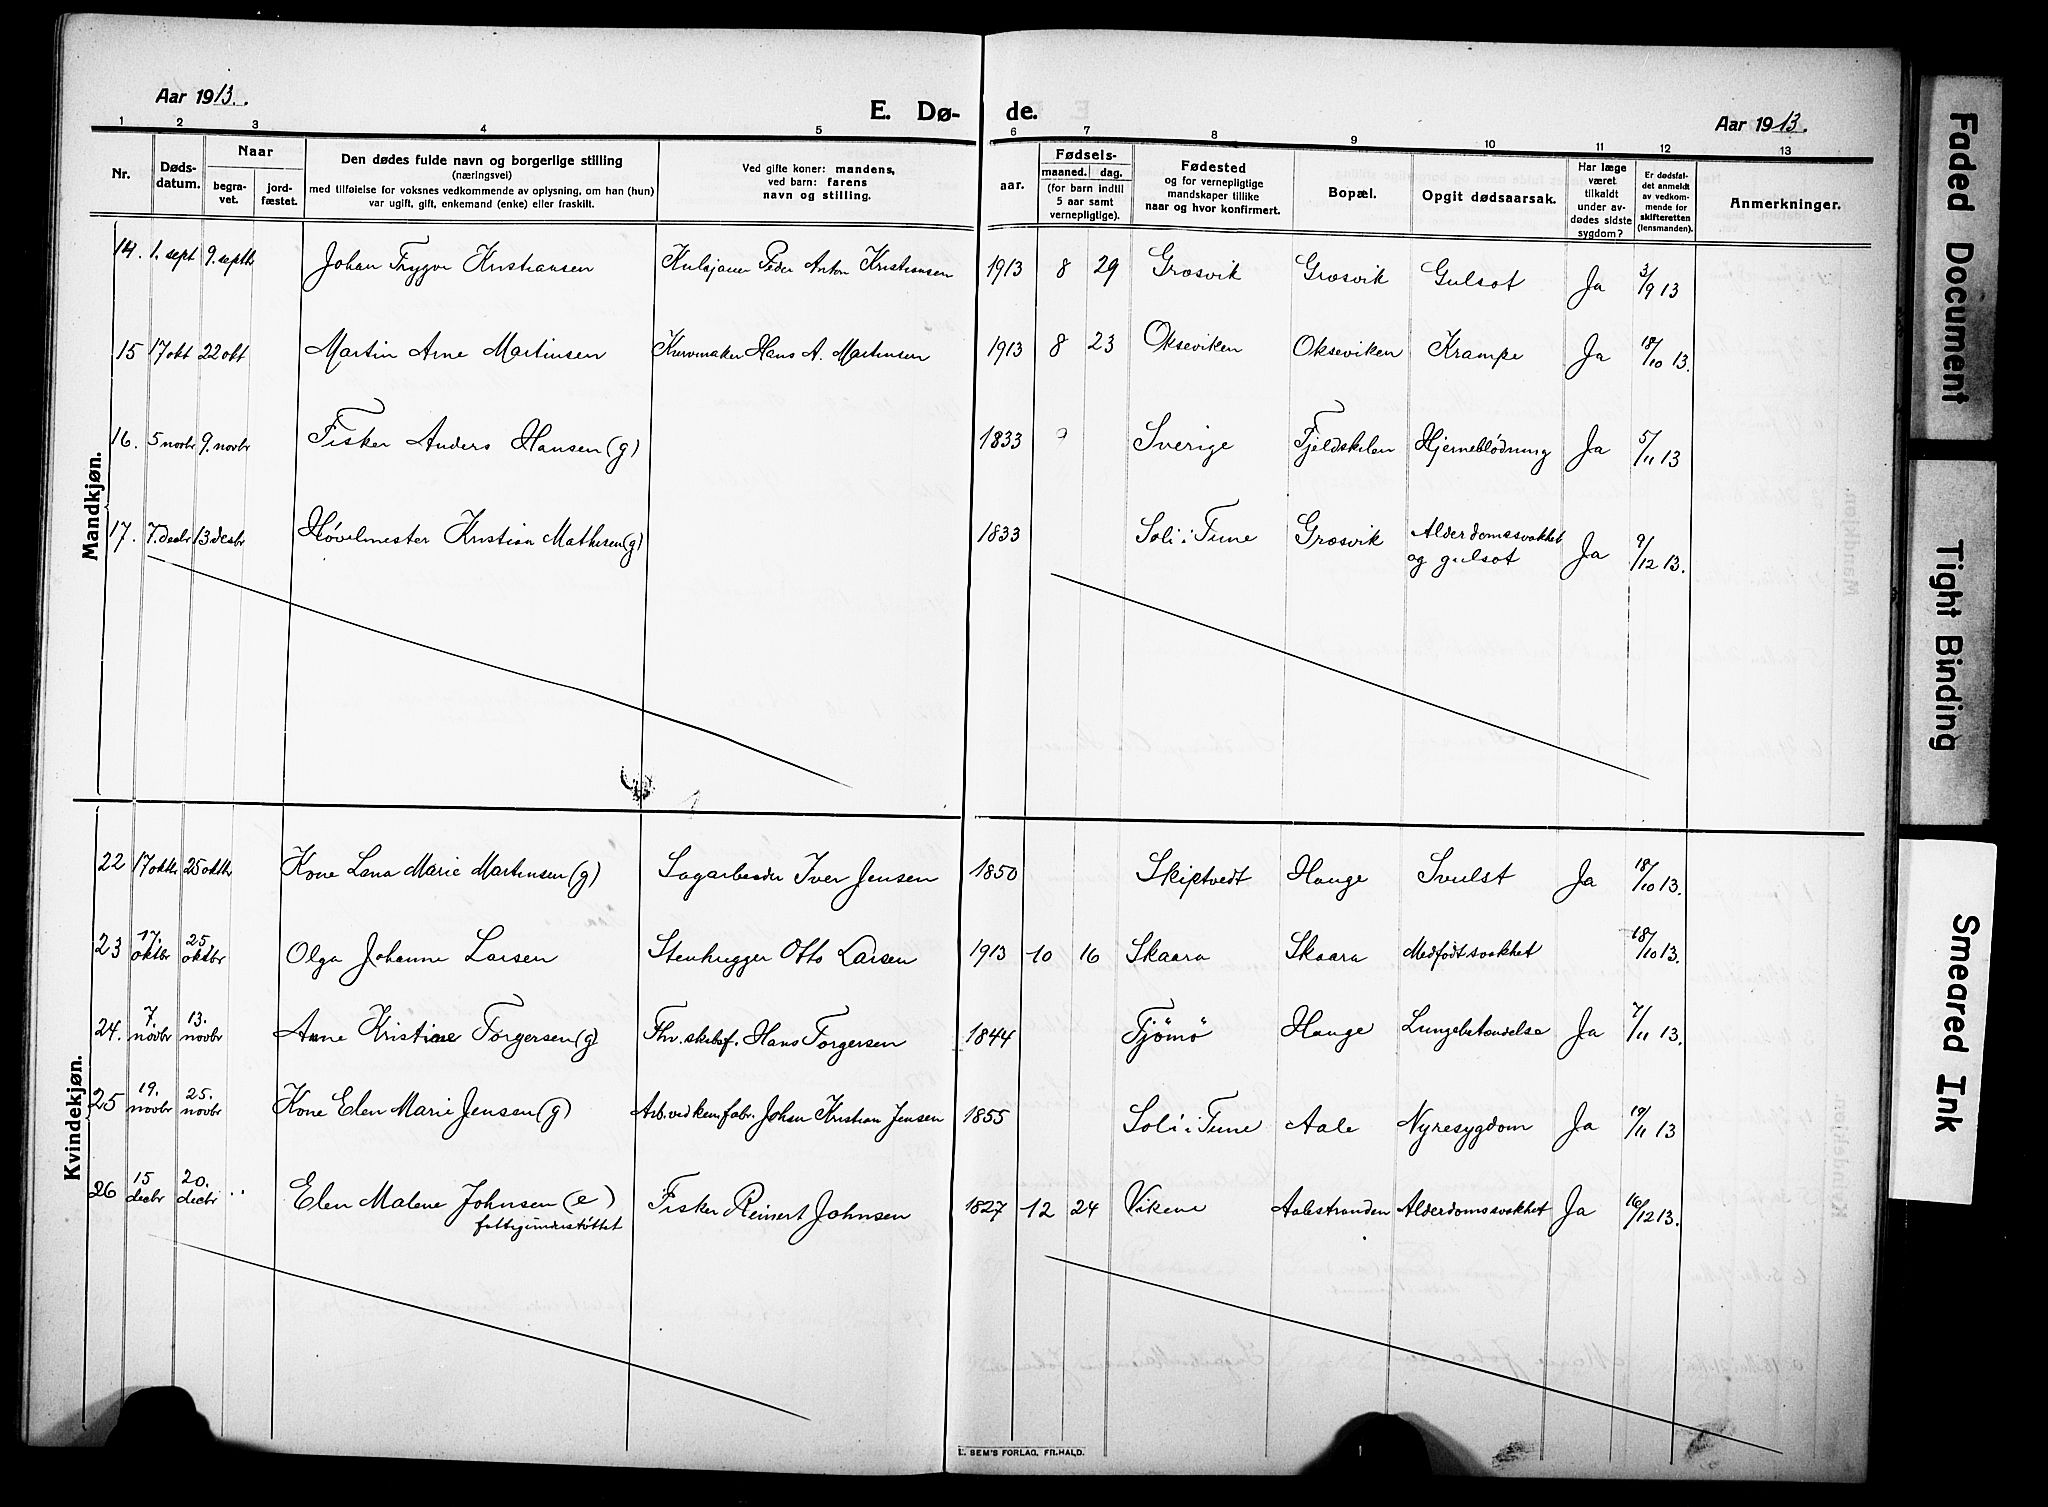 Aar 1913.
E. Dø- de.
Aar 1913.
1 2 3 4 5 6 7 8 9 10 11 12 13
Nr.
Døds-
datum.
Naar
begra-
vet.
jord-
fæstet.
Den dødes fulde navn og borgerlige stilling
(næringsvei)
med tilføielse for voksnes vedkommende av oplysning, om han (hun)
var ugift, gift, enkemand (enke) eller fraskilt.
Ved gifte koner: mandens,
ved barn: farens
navn og stilling.
aar.
Fødsels-
maaned. dag.
(for barn indtil
5 aar samt
vernepligtige).
Fødested
og for vernepligtige
mandskaper tillike
naar og hvor konfirmert.
Bopæl.
Opgit dødsaarsak.
Har læge
været
tilkaldt
under av-
dødes sidste
sygdom?
Er dødsfal-
det anmeldt
av vedkom-
mende for
skifteretten
(lensmanden).
Anmerkninger.
Mandkjøn.
14. 1. sept 9. septbr Johan Trygve Kristiansen Peder Anton Kristiansen 1913 8 29 Græsvik Græsvik Gulsot Ja 3/9 13
15 17 okt 22 okt Martin Arne Martinsen Kurvmaker Hans A. Martinsen 1913 8 23 Okseviken Okseviken Krampe Ja 18/10 13.
16. 5 novbr 9. novbr Fisker Anders Hansen (g) 1833 ? Sverige Fjeldskilen Hjerneblødning Ja 5/11 13
17. 7. decbr 13 decbr Høvelmester Kristian Mathisen (g) 1833 Soli i Tune Græsvik Alderdomssvakhet
og gulsot Ja 9/12 13.
Kvindekjøn.
22 17 oktbr 25 oktbr Kone Lena Marie Martinsen (g) Sagarbeider Iver Jensen 1850 Skiptvedt Hauge Svulst Ja 18/10 13.
23 17. oktbr 25 oktbr Olga Johanne Larsen Stenhugger Otto Larsen 1913 10 16 Skaara Skaara Medfødt svakhet 18/10 13.
24. 7. novbr 13. novbr Anne Kristine Torgersen (g) Fhv. skibsf. Hans Torgersen 1844 Tjømø Hauge Lungebetændelse Ja 7/11 13.
25 19. novbr 25. novbr Kone Elen Marie Jensen (g) Arb. ved kem. fabr. Johan Kristian Jensen 1855 Soli i Tune Aale Nyresygdom Ja 19/11 13
26 15 decbr 20. decbr .. Elen Malene Johnsen (e) Fisker Reinert Johnsen 1827 12 24 Vikene Aalestranden Alderdomssvakhet Ja 16/12 13.
fattigunderstøttet
E. SEM'S FORLAG, FR.HALD.
Faded Document
Tight Binding
Smeared Ink